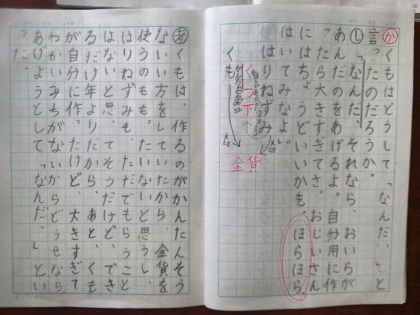 か くもはどうして「なんだ。」と
言ったのだろうか。
し「なんだ、それなら、おいらが
あんたのをあげるよ。自分用に作
ったら大きすぎてさ。おじいさん
にはちょうどいいかも。ほらほら、
はいてみなよ。」
はりねずみ
くつ下
くも
金貨
考 くもは、作るのがかんたんそう
ない方をしていたから、金貨を
使うのもったいないと思うし、
はりねずみも、ただでもらうこと
はないと思う。そうだけど、でき
るだけ年よりだから、あと、くも
が自分に作ったけど、大きすぎて
あげようとして「なんだ。」とい
った。